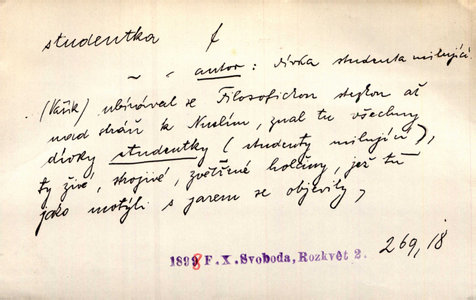 studentka f
~ " autor: dívka studenta milující
(Vařík) ubírával se Filosofickou stezkou až
nad dráń k Nuslím, znal tu všechny
dívky studentky (studenty milující),
ty živé, strojivé, zvětřené holčiny, jež tu
jako motýli s jarem se objevily,
1898 F. X. Svoboda, Rozkvět 2. 269, 18